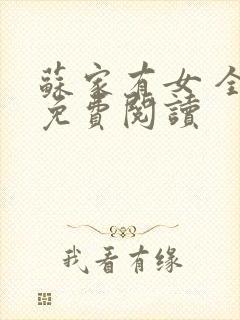 蘇家有女 全
免費閱讀
我看有缘